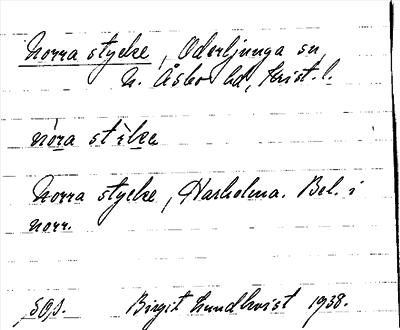 Norra stycke, Oderljunga sn,
N. Åsbo hd, Krist. l.
nóra stỉke
Norra stycke, Harholma. Bel. i
norr.
Birgit Lundkvist 1938.